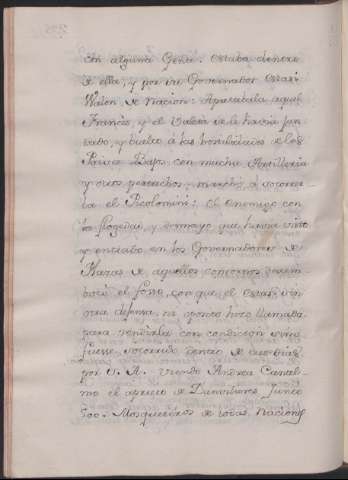 en alguna Gente: estaba dentro
de ella, y por su Governador
Walon de Nacion: Apretabala aquel
Frances, y el Valois se le havia jun
tado, y buelto á las hostilidades de los
Paises Bajos con mucha Artilleria
y otros pertrechos, marchó á socorrer
la el Picolomini: El enemigo con
la flogedad, y desmayo que havia visto
y enseñado en los Governadores de
Plazas de aquellos contornos
el fosso, con que el sin
otra defensa, ni aponto hizo llamada
para rendirla con condicion si no
fuesse socorrido dentro de dies dias
por S. A. viendo Andrea Cantel
mo el aprieto de Dunuiluers Juntó
500. Mosqueteros de todas Naciones